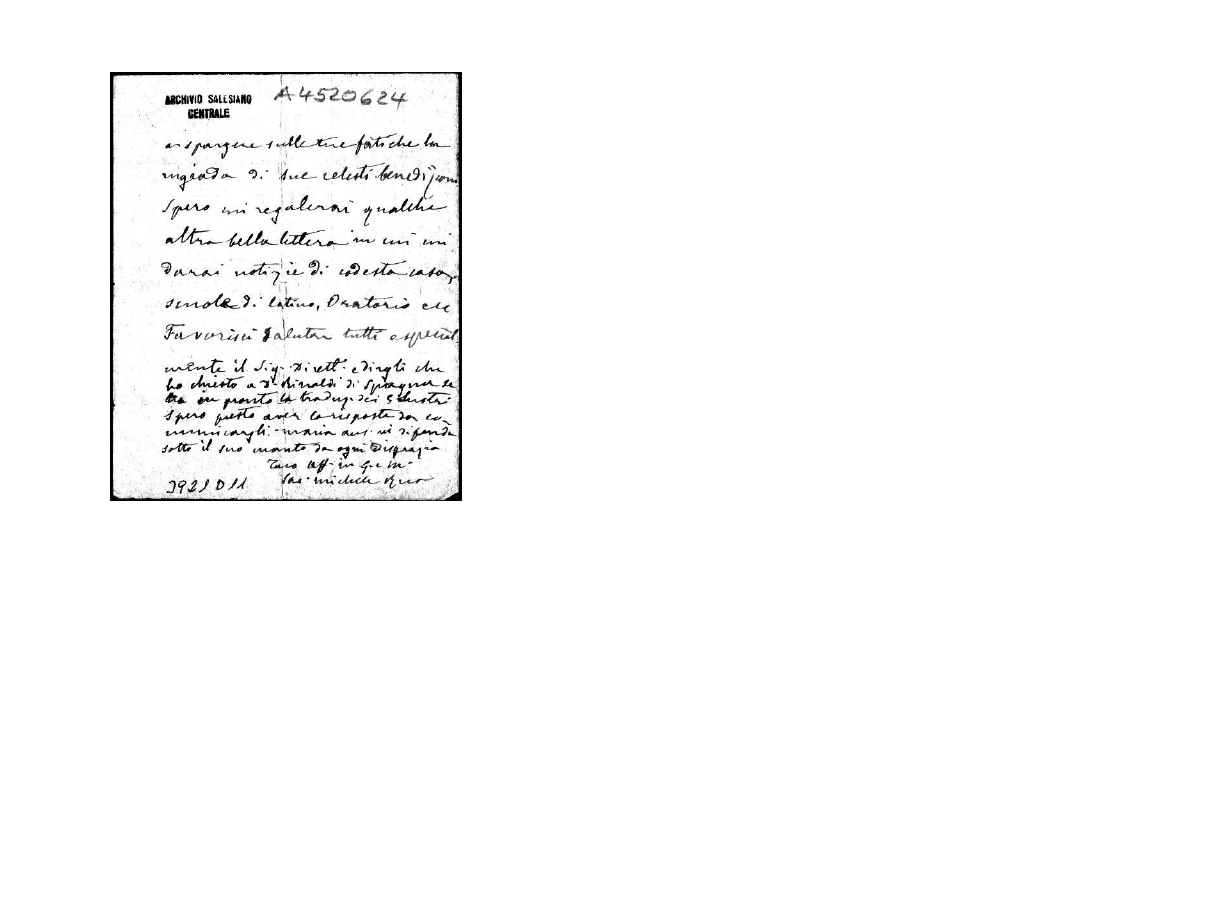 ARCHIVIO SALESIANO
CENTRALE
A4520624
a spargere sulle tue fatiche la
rugiada di sue celesti benedizioni
Spero mi regalerai qualche
altra bella lettera in cui mi
darai notizie di codesta casa,
scuola di latino, Oratorio ecc
Favorisci salutar tutti e special
mente il Sig. Dirett. e dirgli che
ho chiesto a D. Rinaldi di Spagna se
ha in pronto la traduz. dei 5 lustri
Spero presto aver la risposta da co
municargli. Maria Aus. vi difenda
sotto il suo manto da ogni disgrazia
Tuo aff. in G. e M.
Sac. Michele Rua
3921 D 11